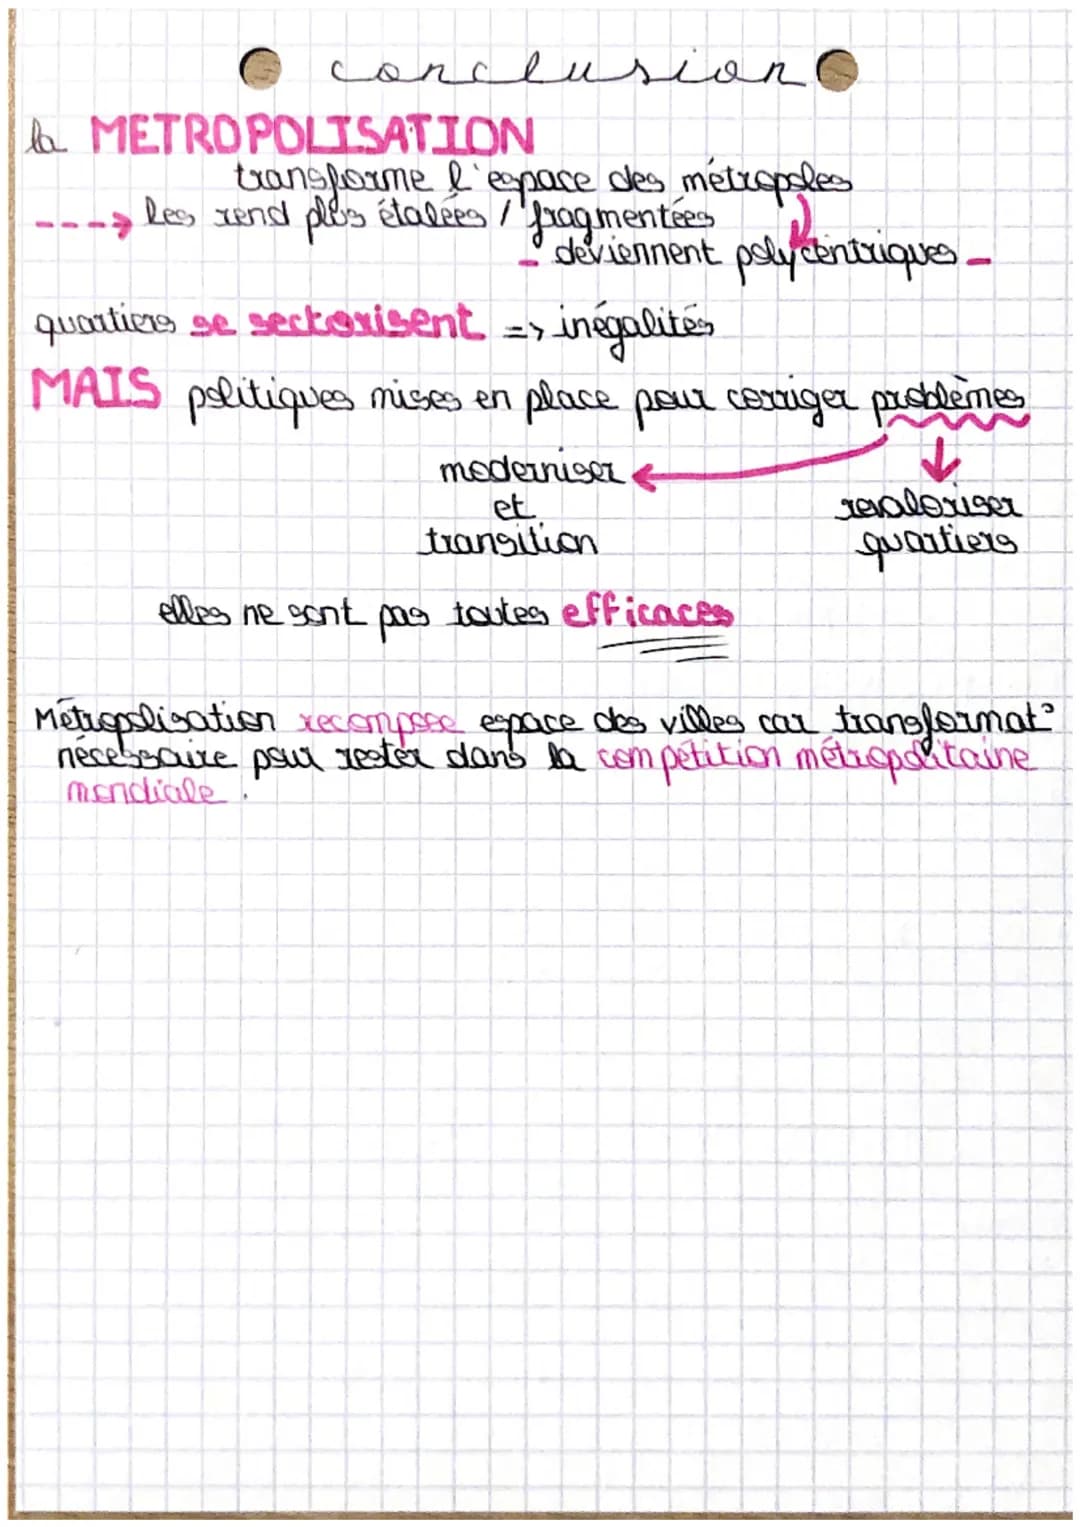 conclusion
la METROPOLISATION
transforme l'espace des métropoles
----> les rend plus étalées / fragmentées
- deviennent polycentriques -
quartiers se sectorisent => inégalités
MAIS politiques mises en place pour corriger problèmes
moderniser
et
transition
revaloriser
quartiers
elles ne sont pas toutes efficaces
Métropolisation recompose espace des villes car transformat°
nécessaire pour rester dans la compétition métropolitaine
mondiale.